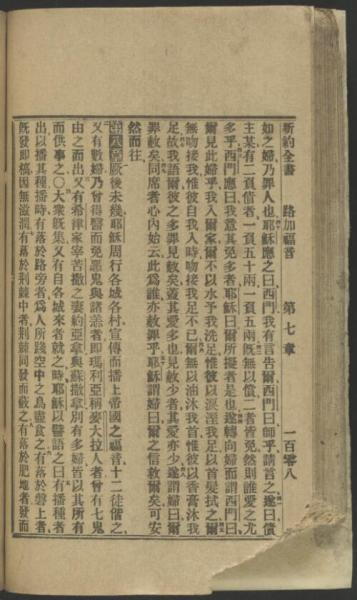 新約全書　路加福音　第七章　一百零八
如之婦乃罪人也耶穌應之曰西門我有言告爾西門曰師乎請言之遂曰債
主某有二負債者一負五十兩一負五兩既無以償二者皆免然則誰愛之尤
多乎西門應曰我意其免多者耶穌曰爾所擬者是也遂轉向婦而謂西門曰
爾見此婦乎我入爾家爾不以水予我洗足惟彼以淚溼我足以首髮拭之爾
無吻接我惟彼自我入時吻接我足不已爾無以油沐我首惟彼以香膏沐我
足故我語爾彼之多罪見赦矣蓋其愛多也見赦少者其愛亦少遂謂婦曰爾
罪赦矣同席者心內始云此爲誰亦赦罪乎耶穌謂婦曰爾之信救爾矣可安
然而往
第八章厥後未幾耶穌周行各城各村宣傳而播上帝國之福音十二徒偕之
又有數婦乃曾得醫而免惡鬼與諸恙者即瑪利亞稱麥大拉人者曾有七鬼
由之而出又有希律家宰苦撒之妻約亞拿與蘇撒拿別有多婦皆以其所有
而供事之〇大衆既集又有自各城來者就之耶穌以譬語之曰有播種者
出以播其種播時有落於路旁者爲人所踐空中之鳥盡食之有落於磐上者
既發即槁因無滋潤有落於荊棘中者荊棘同發而蔽之有落於肥地者發而